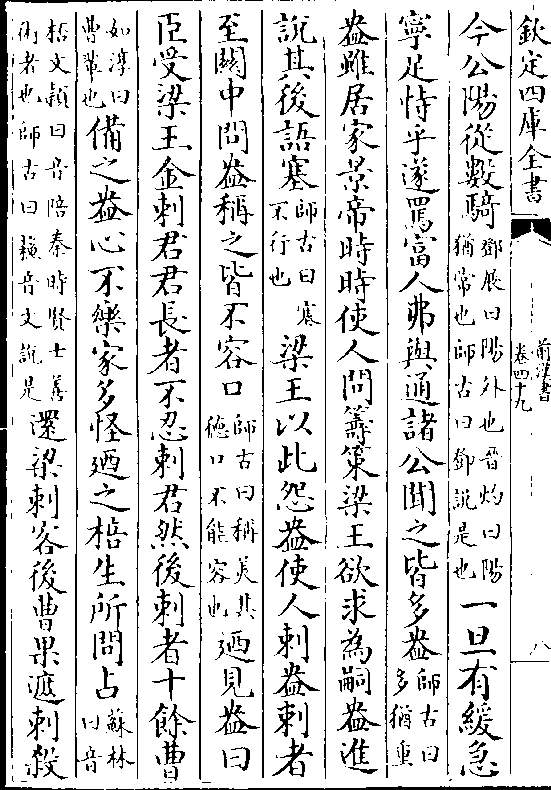 欽定四庫全書
前漢書
卷四十九
八
今公陽從數騎鄧展曰陽外也晉灼曰陽猶常也師古曰鄧説是也一旦有緩急
寧足恃乎遂罵富人弗與通諸公聞之皆多盎師古曰多猶重
盎雖居家景帝時時使人問籌策梁王欲求為嗣盎進
說其後語塞師古曰塞不行也梁王以此怨盎使人刺盎刺者
至關中問盎稱之皆不容口師古曰稱美其德口不能容也廼見盎曰
臣受梁王金刺君君長者不忍刺君然後刺者十餘曹
如淳曰曹輩也備之盎心不樂家多怪廼之棓生所問占蘇林曰音
棓文穎曰音陪秦時賢士善術者也師古曰蘇音文說是還梁刺客後曹果遮刺殺